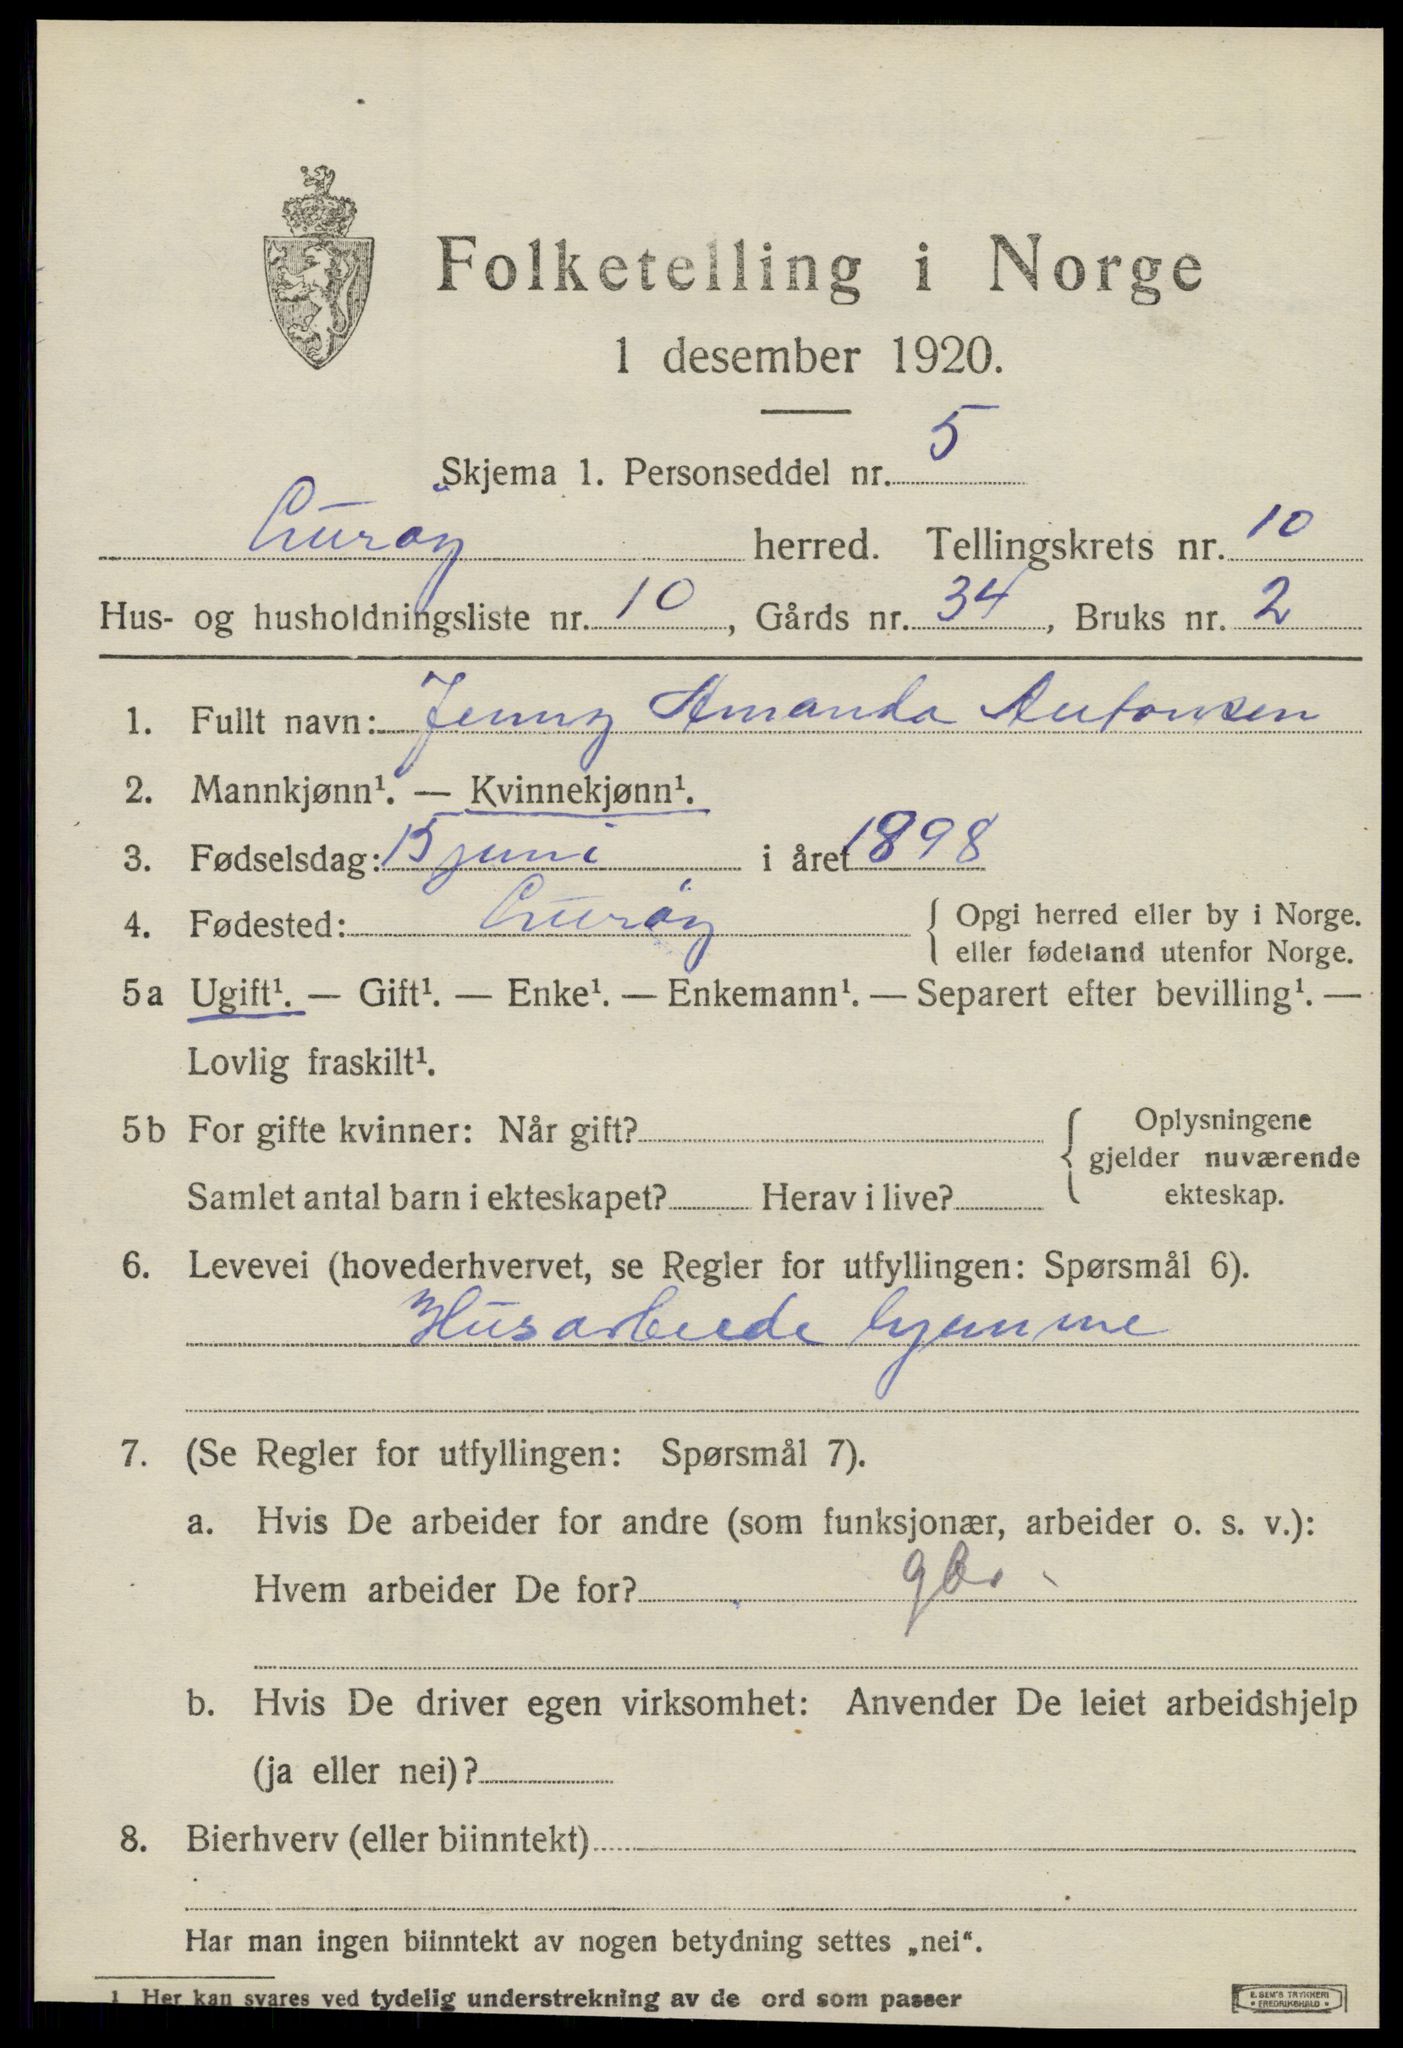 Folketelling i Norge
1 desember 1920.
Skjema 1. Personseddel nr. 5
Lurøy herred. Tellingskrets nr. 10
Hus- og husholdningsliste nr. 10, Gårds nr. 34, Bruks nr. 2
1. Fullt navn: Jenny Amanda Antonsen
2. Mannkjønn¹. — Kvinnekjønn¹.
3. Fødselsdag: 15 juni i året 1898
4. Fødested: Lurøy { Opgi herred eller by i Norge.
eller fødeland utenfor Norge.
5a Ugift¹. — Gift¹. — Enke¹. — Enkemann¹. — Separert efter bevilling¹. —
Lovlig fraskilt¹.
5b For gifte kvinner: Når gift? { Oplysningene
gjelder nuværende
Samlet antal barn i ekteskapet? Herav i live? ekteskap.
6. Levevei (hovederhvervet, se Regler for utfyllingen: Spørsmål 6).
Husarbeide hjemme
7. (Se Regler for utfyllingen: Spørsmål 7).
a. Hvis De arbeider for andre (som funksjonær, arbeider o. s. v.):
Hvem arbeider De for?
b. Hvis De driver egen virksomhet: Anvender De leiet arbeidshjelp
(ja eller nei)?
8. Bierhverv (eller biinntekt)
Har man ingen biinntekt av nogen betydning settes „nei“.
1 Her kan svares ved tydelig understrekning av de ord som passer
E. SEM'S TRYKKERI
FREDRIKSHALD